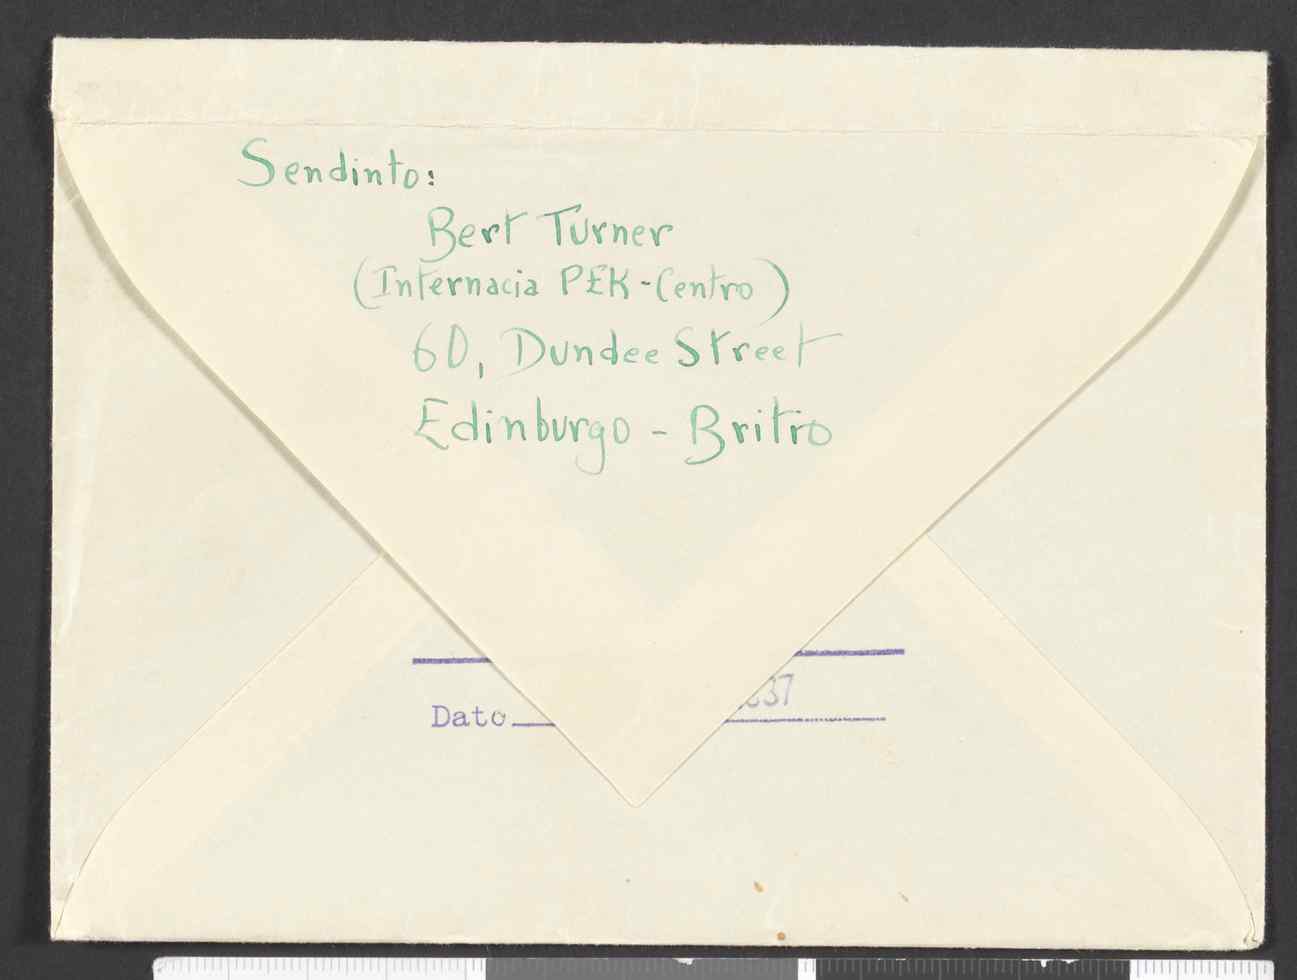 Sendinto:
Bert Turner
(Internacia PEK-Centro)
60, Dundee Street
Edinburgo - Britro
Dato 37